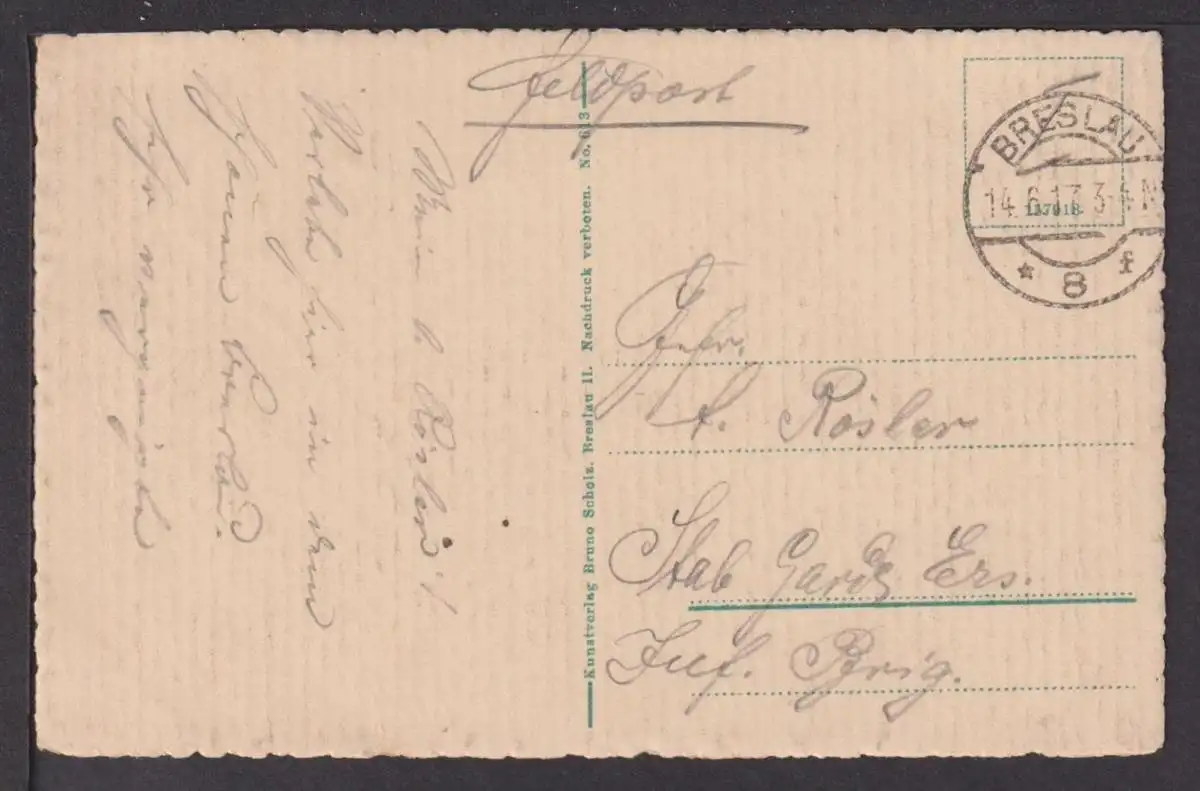 Feldpost
BRESLAU
14.6.17. 3-4 N
* 8 f
157918
Gefr.
A. Rösler
Stab Garde Ers.
Inf. Brig.
Kunstverlag Bruno Scholz. Breslau II. Nachdruck verboten. No. 613
Mein l. Rösler!
hier in dem